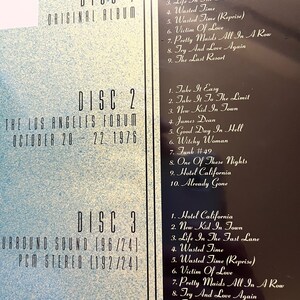 ORIGINAL ALBUM
5. Wasted Time (Reprise)
6. Victim Of Love
7. Pretty Maids All In A Row
8. Try And Love Again
9. The Last Resort
DISC 2
THE LOS ANGELES FORUM
OCTOBER 20 - 22, 1976
1. Take It Easy
2. Take It To The Limit
3. New Kid In Town
4. James Dean
5. Good Day In Hell
6. Witchy Woman
7. Funk #49
8. One Of These Nights
9. Hotel California
10. Already Gone
DISC 3
RROUND SOUND (96/24)
PCM STEREO (192/24)
1. Hotel California
2. New Kid In Town
3. Life In The Fast Lane
4. Wasted Time
5. Wasted Time (Reprise)
6. Victim Of Love
7. Pretty Maids All In A Row
8. Try And Love Again